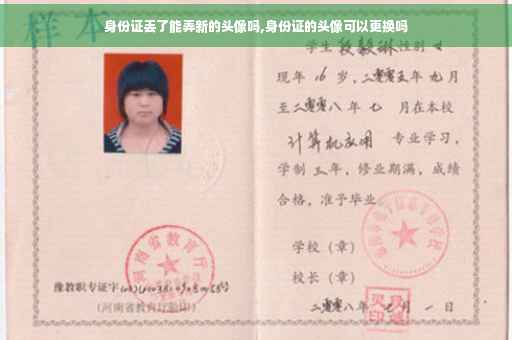 身份证丢了能弄新的头像吗,身份证的头像可以更换吗
样本
学生 段毅琳 性别 女
现年 16 岁,二零零五年 九 月
至二零零八年 七 月在本校
计算机应用 专业学习,
学制 三 年,修业期满,成绩
合格,准予毕业
学校(章)
校长(章)
二零零八年 七 月 一 日
河南省教育厅
豫教职专证字
(河南省教育厅验印)